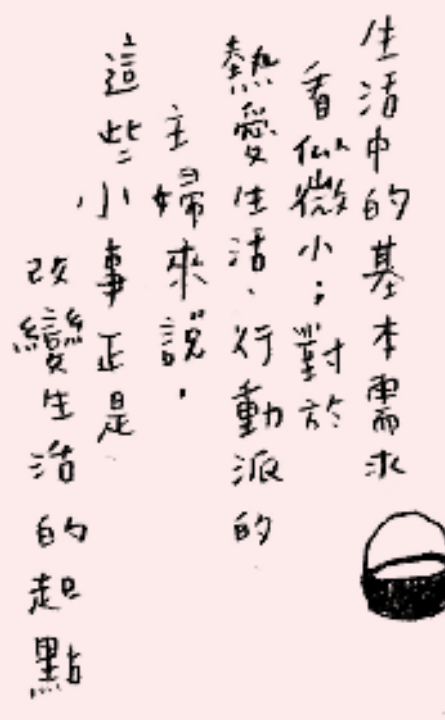 生活中的基本需求
看似微小；對於
熱愛生活、行動派的
主婦來說，
這些小事正是
改變生活的起點